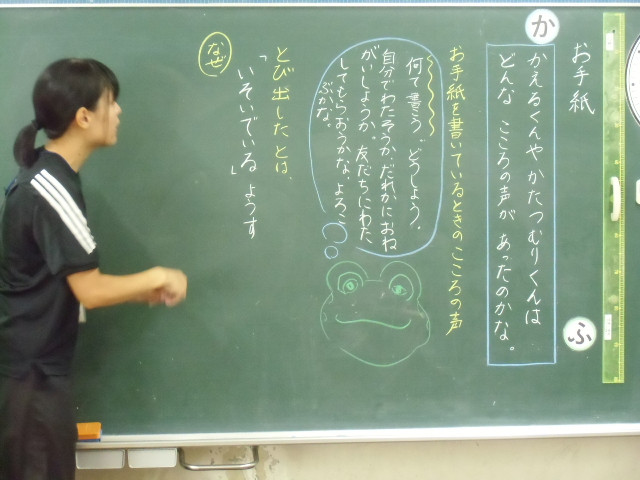 お手紙
か
かえるくんや かたつむりくんは
どんな こころの声が あったのかな。
ふ
お手紙を書いているときのこころの声
何て書こう。どうしよう。
自分でわたそうか、だれかにおね
がいしようか。友だちにわた
してもらおうかな。よろこ
ぶかな。
とび出した とは、
「いそいでいる」ようす
なぜ